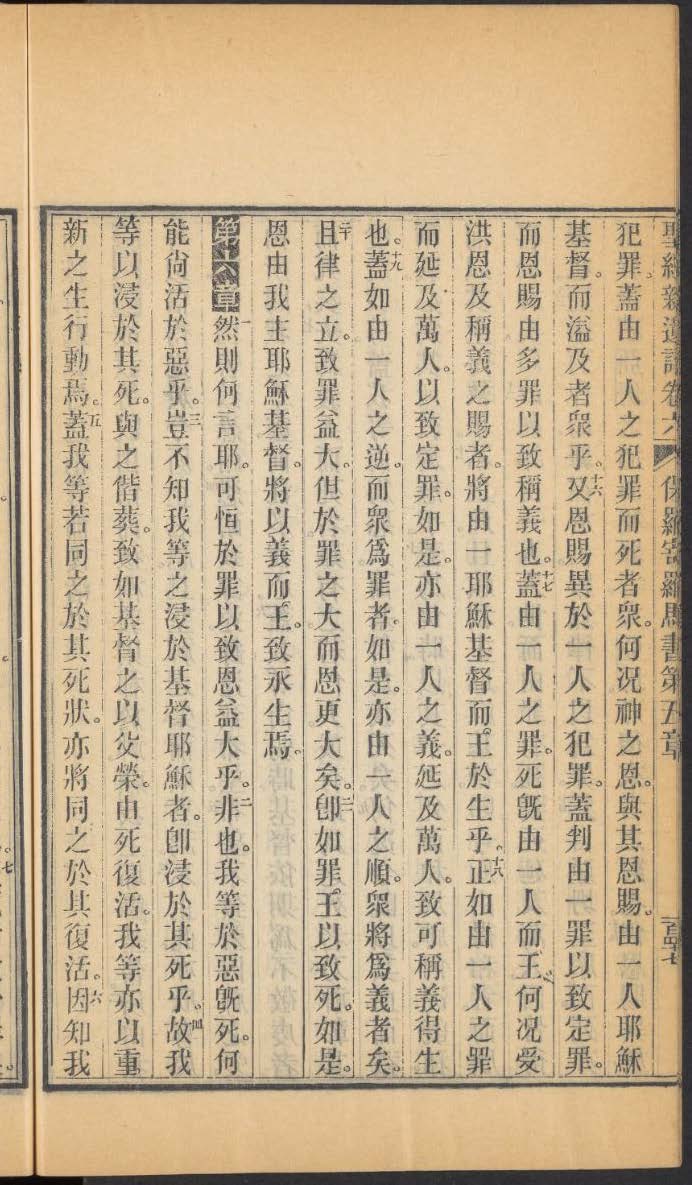 聖經新遺詔卷六 保羅寄羅馬書第五章 百四七
犯罪蓋由一人之犯罪而死者衆。何况神之恩。與其恩賜。由一人耶穌
基督。而溢及者衆乎。十六又恩賜異於一人之犯罪。蓋判由一罪以致定罪。
而恩賜由多罪以致稱義也。十七蓋由一人之罪。死旣由一人而王。何况受
洪恩及稱義之賜者。將由一耶穌基督而王於生乎。十八正如由一人之罪
而延及萬人。以致定罪。如是。亦由一人之義。延及萬人。致可稱義得生
也。十九蓋如由一人之逆。而衆爲罪者。如是。亦由一人之順。衆將爲義者矣。
二十且律之立。致罪益大。但於罪之大而恩更大矣。二一卽如罪王以致死。如是。
恩由我主耶穌基督。將以義而王。致永生焉。
第六章一然則何言耶。可恒於罪以致恩益大乎。二非也。我等於惡旣死。何
能尙活於惡乎。三豈不知我等之浸於基督耶穌者。卽浸於其死乎。四故我
等以浸於其死。與之偕葬。致如基督之以父榮。由死復活。我等亦以重
新之生行動焉。五蓋我等若同之於其死狀。亦將同之於其復活。六因知我